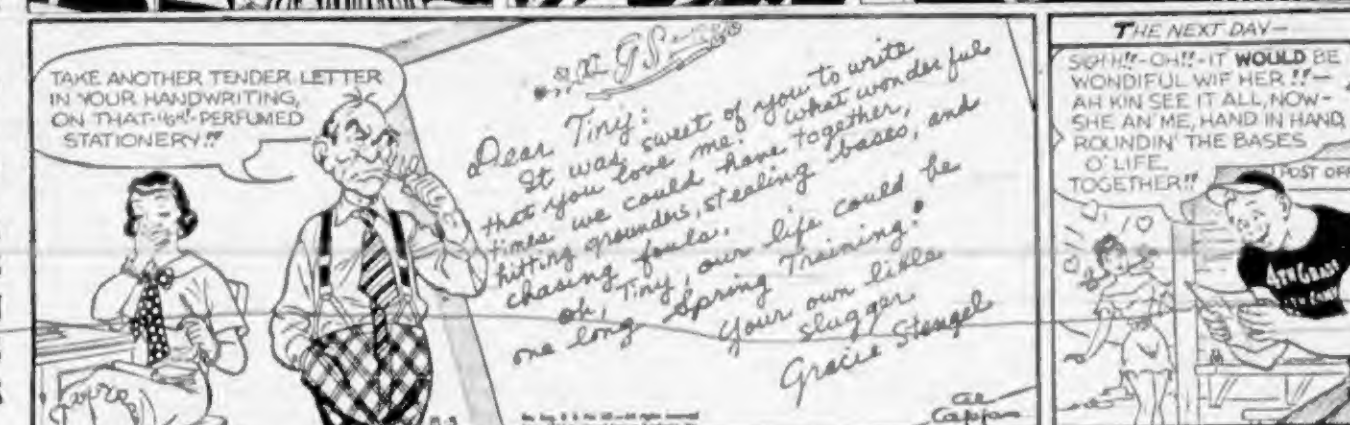 TAKE ANOTHER TENDER LETTER
IN YOUR HANDWRITING,
ON THAT-UGH!-PERFUMED
STATIONERY!!
GS
Dear Tiny:
It was sweet of you to write
that you love me. What wonderful
times we could have together,
hitting grounders, stealing bases, and
chasing fouls.
Oh, Tiny, our life could be
one long Spring Training!
Your own little
slugger
Gracie Stengel
Al
Capp
THE NEXT DAY—
SIGH!!-OH!!-IT WOULD BE
WONDIFUL WIF HER!!—
AH KIN SEE IT ALL, NOW-
SHE AN' ME, HAND IN HAND,
ROUNDIN' THE BASES
O' LIFE,
TOGETHER!!
POST OFF
4TH GRADE